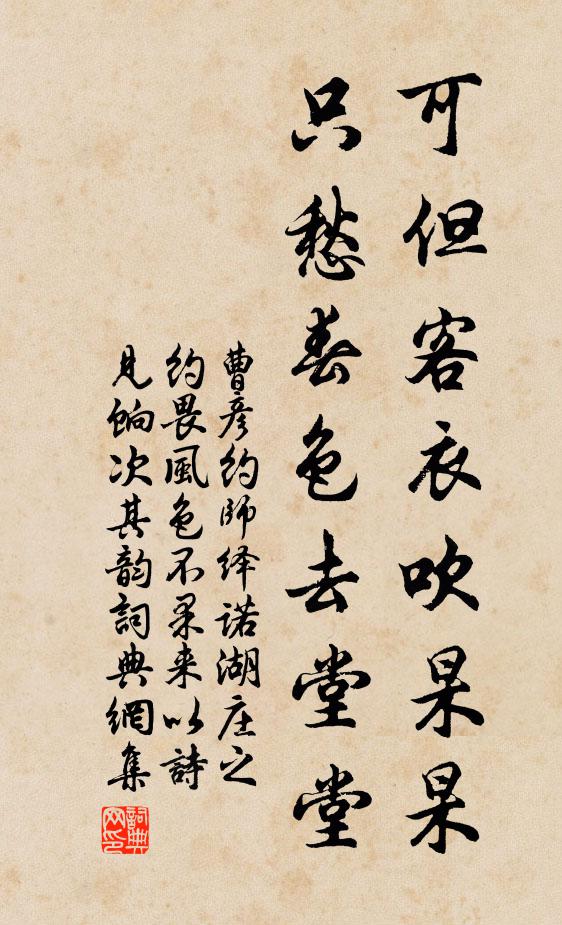 可但客衣吹杲杲
只愁春色去堂堂
曹彦约師绎诺湖庄之
约畏風色不果来以詩
見餉次其韵詞典網集
詞典网印